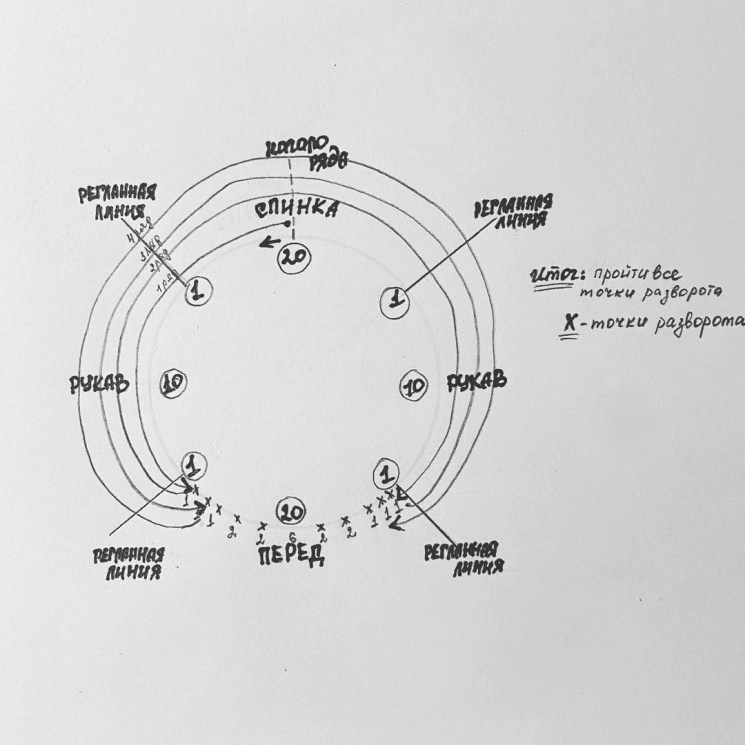 НАЧАЛО
РЯДА
РЕГЛАННАЯ
ЛИНИЯ
СПИНКА
РЕГЛАННАЯ
ЛИНИЯ
4 ряд
3 ряд
2 ряд
1 ряд
20
1
1
Итог: пройти все
точки разворота
X - точки разворота
РУКАВ
10
10
РУКАВ
1
1
20
1 1 2 2 6 2 2 1 1 1
ПЕРЕД
РЕГЛАННАЯ
ЛИНИЯ
РЕГЛАННАЯ
ЛИНИЯ